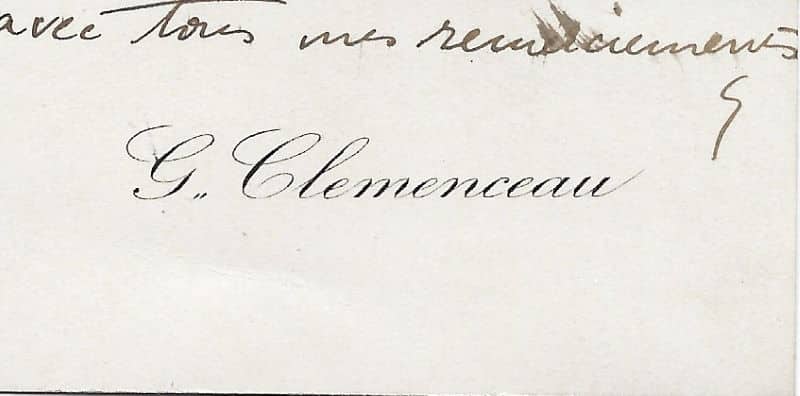 avec tous mes remerciements
G
G. Clemenceau